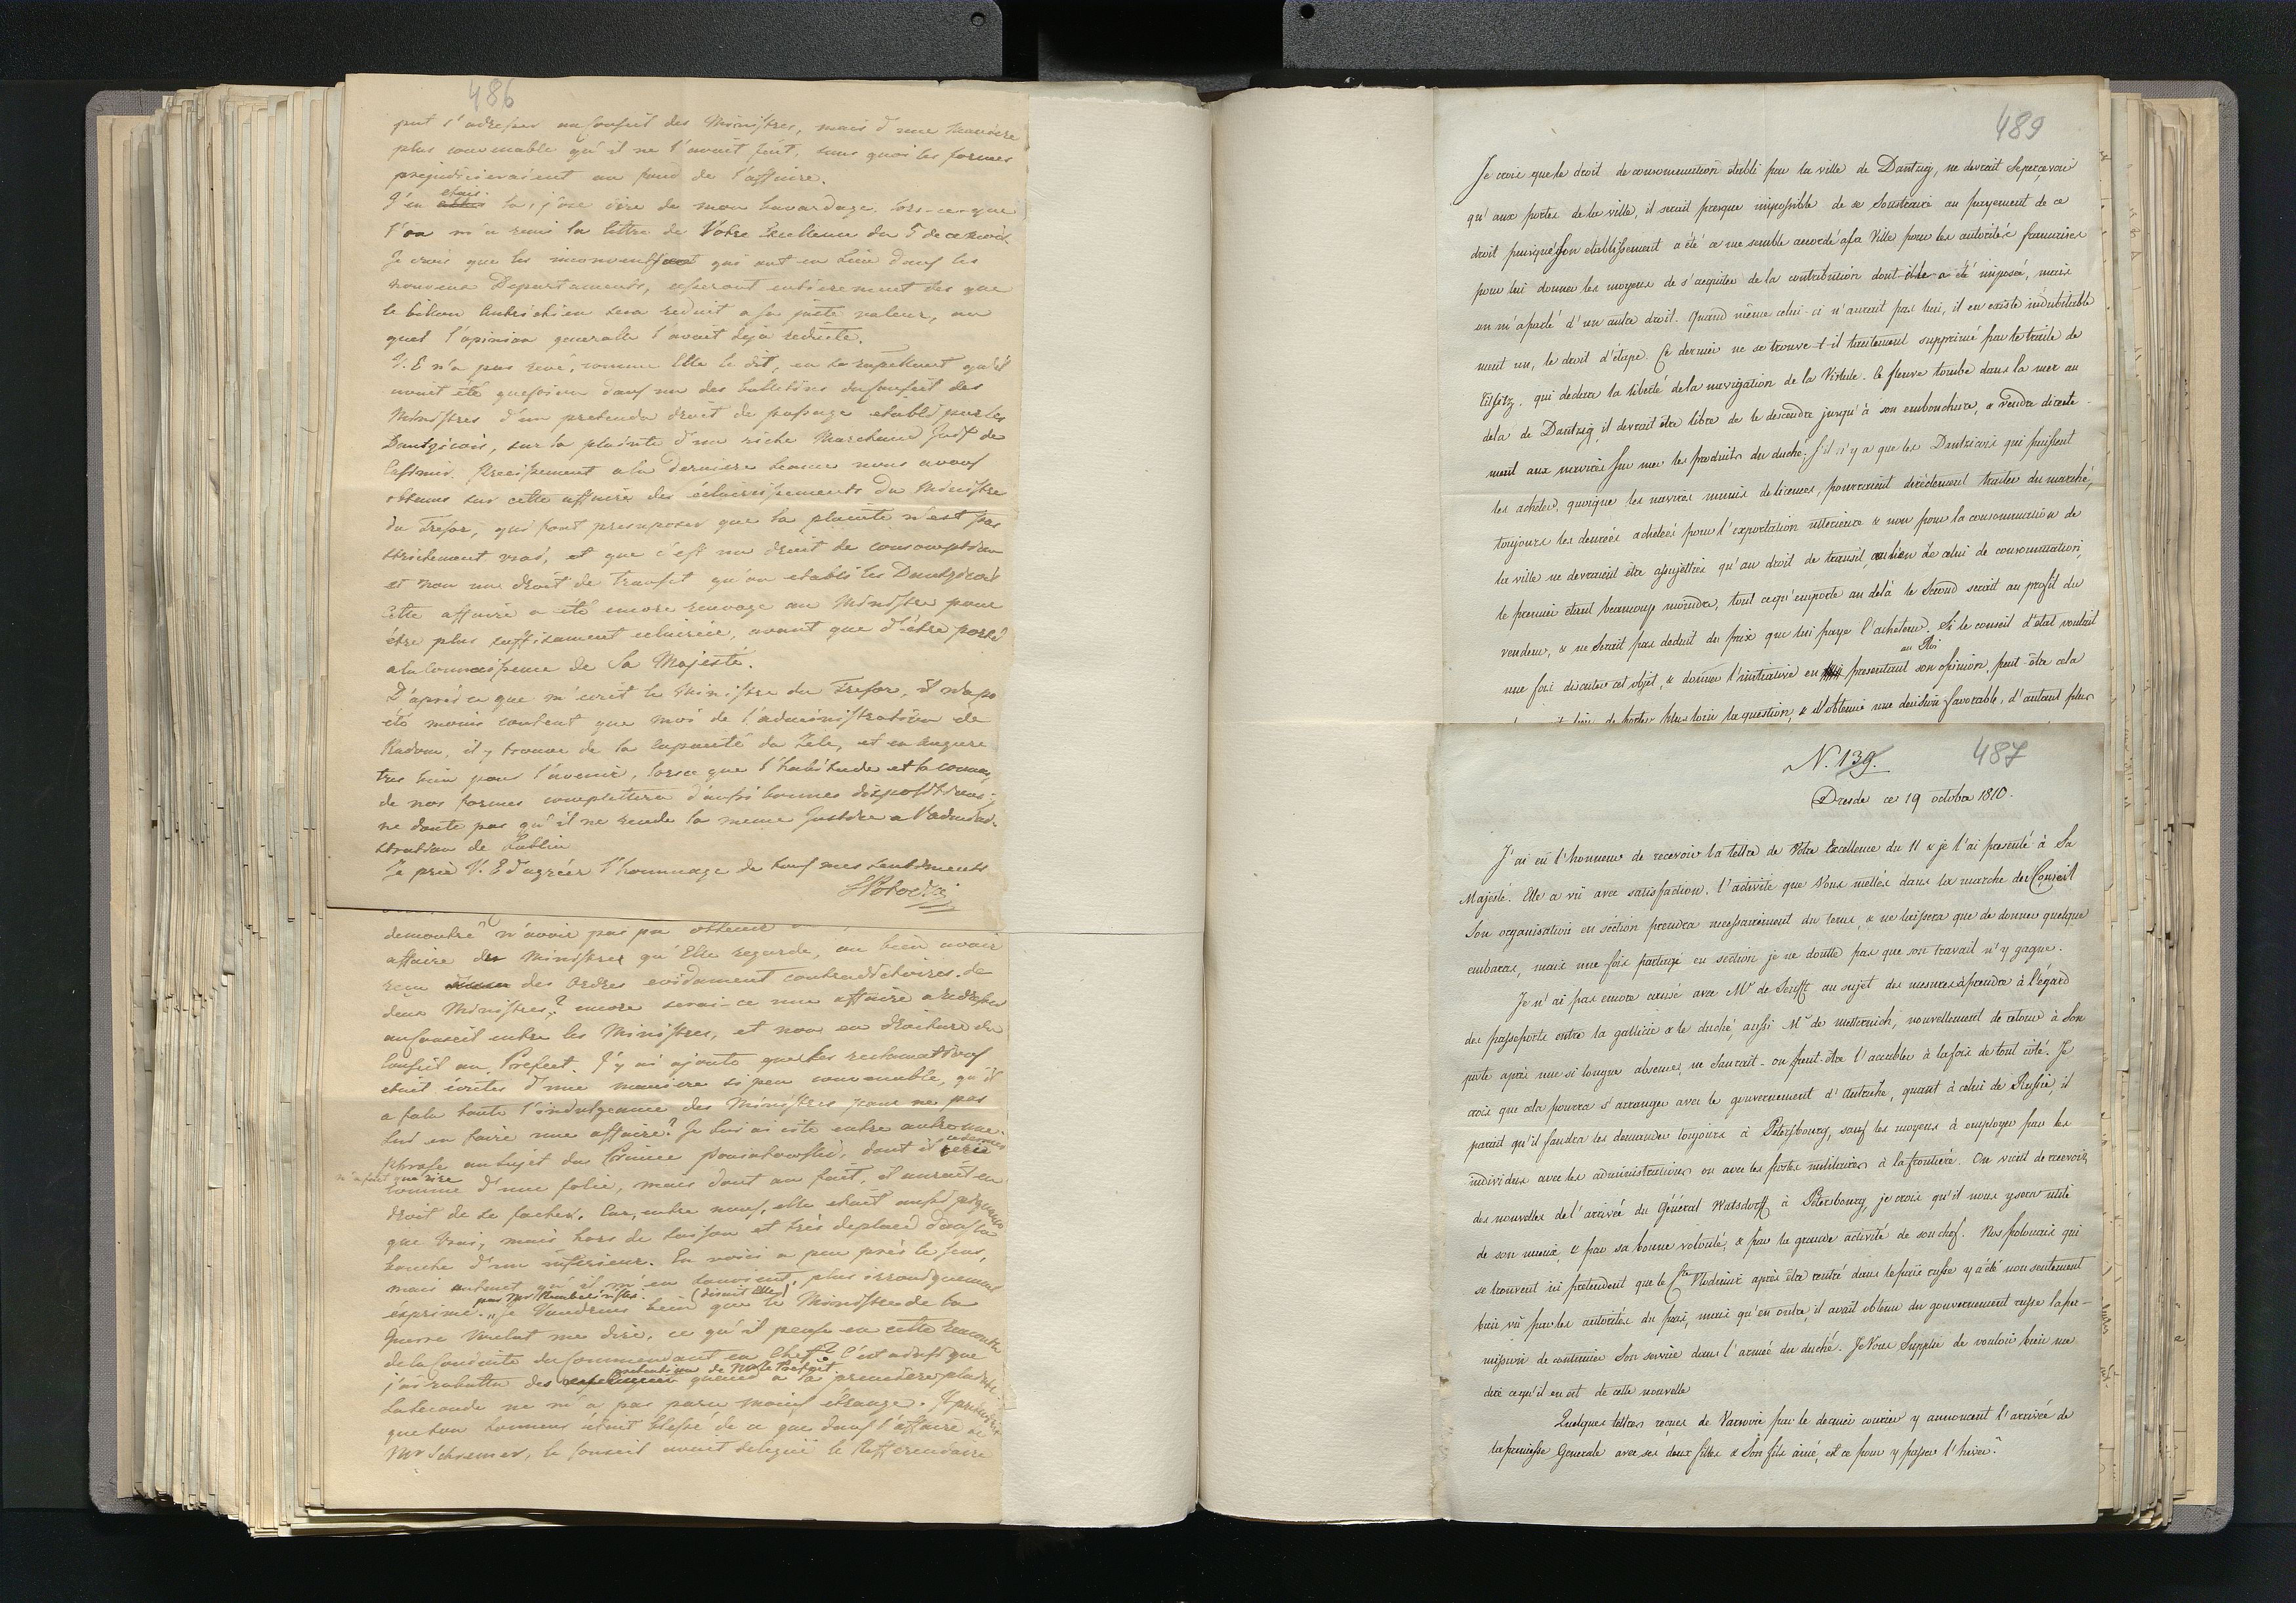 486
put s'adresser au Conseil des Ministres, mais d'une maniere
plus convenable qu'il ne l'avait fait, sans quoi les formes
prejudicieraient au fond de l'affaire.
J'en etais la, j'ose dire de mon bavardage, lors-ce-que
l'on m'a remis la lettre de Votre Excellence du 5 de ce mois.
Je crois que les inconvenients qui ont eu Lieu dans les
nouveaux Departaments, cesseront entierement des que
le billon Autrichien sera reduit a sa juste valeur, au
quel l'opinion generalle l'avait deja reduite.
V. E n'a pas revé, comme Elle le dit, en se rapellant qu'il
avait été question dans un des bulletins du Conseil des
Ministres d'un pretendu droit de passage etabli par les
Dantzicois, sur la plainte d'un riche Marchand Juif de
Precisement a la derniere Seance nous avons
obtenus sur cette affaire des éclaircissements du Ministre
du Tresor, qui font presuposer que la plainte n'est pas
strictement vrai, et que c'est un droit de consomption
et non un droit de Transit qu'on etabli les Dantzicois
Cette affaire a été encore renvoyé au Ministre pour
être plus suffisament eclaircie, avant que d'être porté
a la Connaissance de Sa Majesté.
D'après ce que m'ecrit le Ministre du Tresor, il n'a pas
été moins content que moi de l'administration de
Radom, il y trouve de la capacité du Zele, et en augure
tres bien pour l'avenir, lorsce que l'habitude et la connais.
de nos formes completera d'aussi bonnes dispositions;
ne doute pas qu'il ne rende la meme Justice a l'adminis-
stration de Lublin
Je prie V. E d'agréer l'hommage de tous mes sentiments
SPotocki
demontré n'avoir pas pu obtenir
affaire des Ministres qu'Elle regarde, ou bien avoir
reçu des Ordres evidament contradictoires de
deux Ministres? encore serai-ce une affaire a redresser
au Conseil entre les Ministres, et non en droiture du
Conseil au Prefect. J'y ai ajouté que les reclamations
etait écrites d'une maniere si peu convenable, qu'il
a falu toute l'indulgeance des Ministres pour ne pas
lui en faire une affaire? Je lui ai cité entre autre une
phrase au sujet du Prince Poniatowski, dont il
n'a fait que rire
comme d'une folie, mais dont au fait, il aurait eu
droit de se facher. Car, entre nous, elle etait aussi
que vrai, mais hors de saison et très deplacé dans la
bouche d'un inferieur. En voici a peu près le sens,
mais autant qu'il m'en souvient, plus
exprimé. „Je Voudrais bien (disait Elle) que le Ministre de la
Guerre Voulut me dire, ce qu'il pense en cette
de la Conduite du Commendant en Chef? C'est ainsi que
j'ai rabattu des pretentions de Notre Prefect quand a la premiere plainte.
La seconde ne m'a pas paru moins étrange. Il
que son honneur était blessé de ce que dans l'affaire de
Mr Schremer, le Conseil avait delegué le Refferendaire
489
Je crois que le droit de consommation établi par la ville de Dantzig, ne devrait se percevoir
qu'aux portes de la ville, il serait presque impossible de se soustraire au payement de ce
droit puisque son etablissement a été ce me semble accordé a la Ville par les autorités françaises
pour lui donner les moyens de s'acquiter de la contribution dont elle a été imposée, mais
on m'a parlé d'un autre droit. Quand même celui-ci n'aurait pas lieu, il en existe indubitable
ment un, le droit d'étape. Ce dernier ne se trouve-t-il tacitement supprimé par le traité de
Tilsitz, qui declare la liberté de la navigation de la Vistule. Ce fleuve tombe dans la mer au
dela de Dantzig, il devrait être libre de le descendre jusqu'à son embouchure, & vendre directe-
ment aux navires sur mer les produits du duché. S'il n'y a que les Dantzicois qui puissent
les acheter, quoique les navires munis de licences, pourraient directement traiter du marché,
toujours les denrées achetées pour l'exportation ulterieure & non pour la consommation de
la ville ne devraient être assujetties qu'au droit de transit, au lieu de celui de consommation,
le premier étant beaucoup moindre, tout ce qu'emporte au délà le second serait au profit du
vendeur, & ne serait pas deduit du prix que lui paye l'acheteur. Si le conseil d'état voulait
une fois discuter cet objet, & donner l'initiative en presentant au Roi son opinion, peut-être cela
lieu de porter plus loin la question, & d'obtenir une decision favorable, d'autant plus
487
N. 139.
Dresde ce 19 octobre 1810.
J'ai eû l'honneur de recevoir la lettre de Votre Excellence du 11 & je l'ai presenté à Sa
Majesté. Elle a vû avec satisfaction, l'activité que Vous mettés dans la marche des Conseil
Son organisation en section prendra necessairement du tems, & ne laissera que de donner quelque
embaras, mais une fois partagé en section je ne doutte pas que son travail n'y gagne.
Je n'ai pas encore causé avec Mr de Senfft au sujet des mesures à prendre à l'égard
des passeports entre la gallicie & le duché, aussi Mr de Metternich, nouvellement de retour à son
poste après une si longue absence, ne saurait-on peut-être l'accabler à la fois de tout coté. Je
crois que cela pourra s'arranger avec le gouvernement d'Autriche, quant à celui de Russie, il
parait qu'il faudra les demander toujours à Petersbourg, sauf les moyens à employer par les
individus avec les administrations ou avec les postes militaires à la frontière. On vient de recevoir
des nouvelles de l'arrivée du Général Watsdorff à Petersbourg, je crois qu'il nous y sera utile
de son mieux, & par sa bonne volonté, & par la grande activité de son chef. Nos polonais qui
se trouvent ici pretendent que le après être rentré dans le païs russe y a été non seulement
bien vû par les autorités du païs, mais qu'en outre, il avait obtenu du gouvernement russe la per-
mission de continuer son service dans l'armée du duché. Je Vous supplie de vouloir bien me
dire ce qu'il en est de cette nouvelle
Quelques lettres reçues de Varsovie par le dernier courier y annoncent l'arrivée de
la princesse Generale avec ses deux filles & son fils ainé, est ce pour y passer l'hiver?